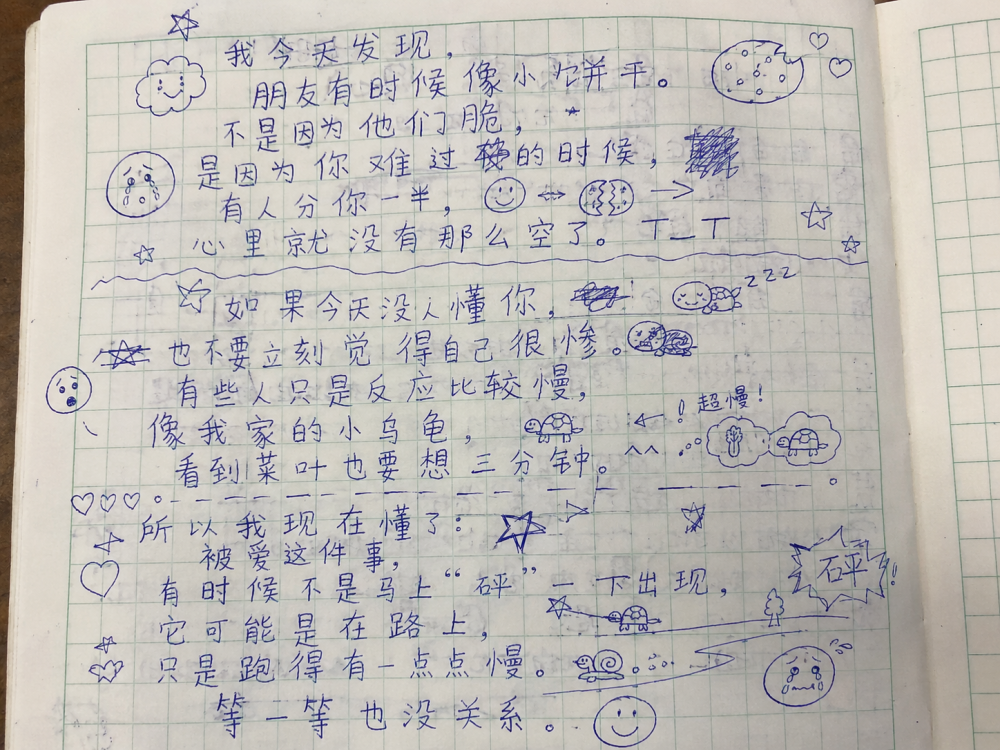 我今天发现，
朋友有时候像小饼干。
不是因为他们脆，
是因为你难过的时候，
有人分你一半，
心里就没有那么空了。T_T
如果今天没人懂你，
也不要立刻觉得自己很惨。
有些人只是反应比较慢，
像我家的小乌龟，
超慢！
看到菜叶也要想三分钟。^^
所以我现在懂了：
被爱这件事，
有时候不是马上“砰”一下出现，
砰!
它可能是在路上，
只是跑得有一点点慢。
等一等也没关系。